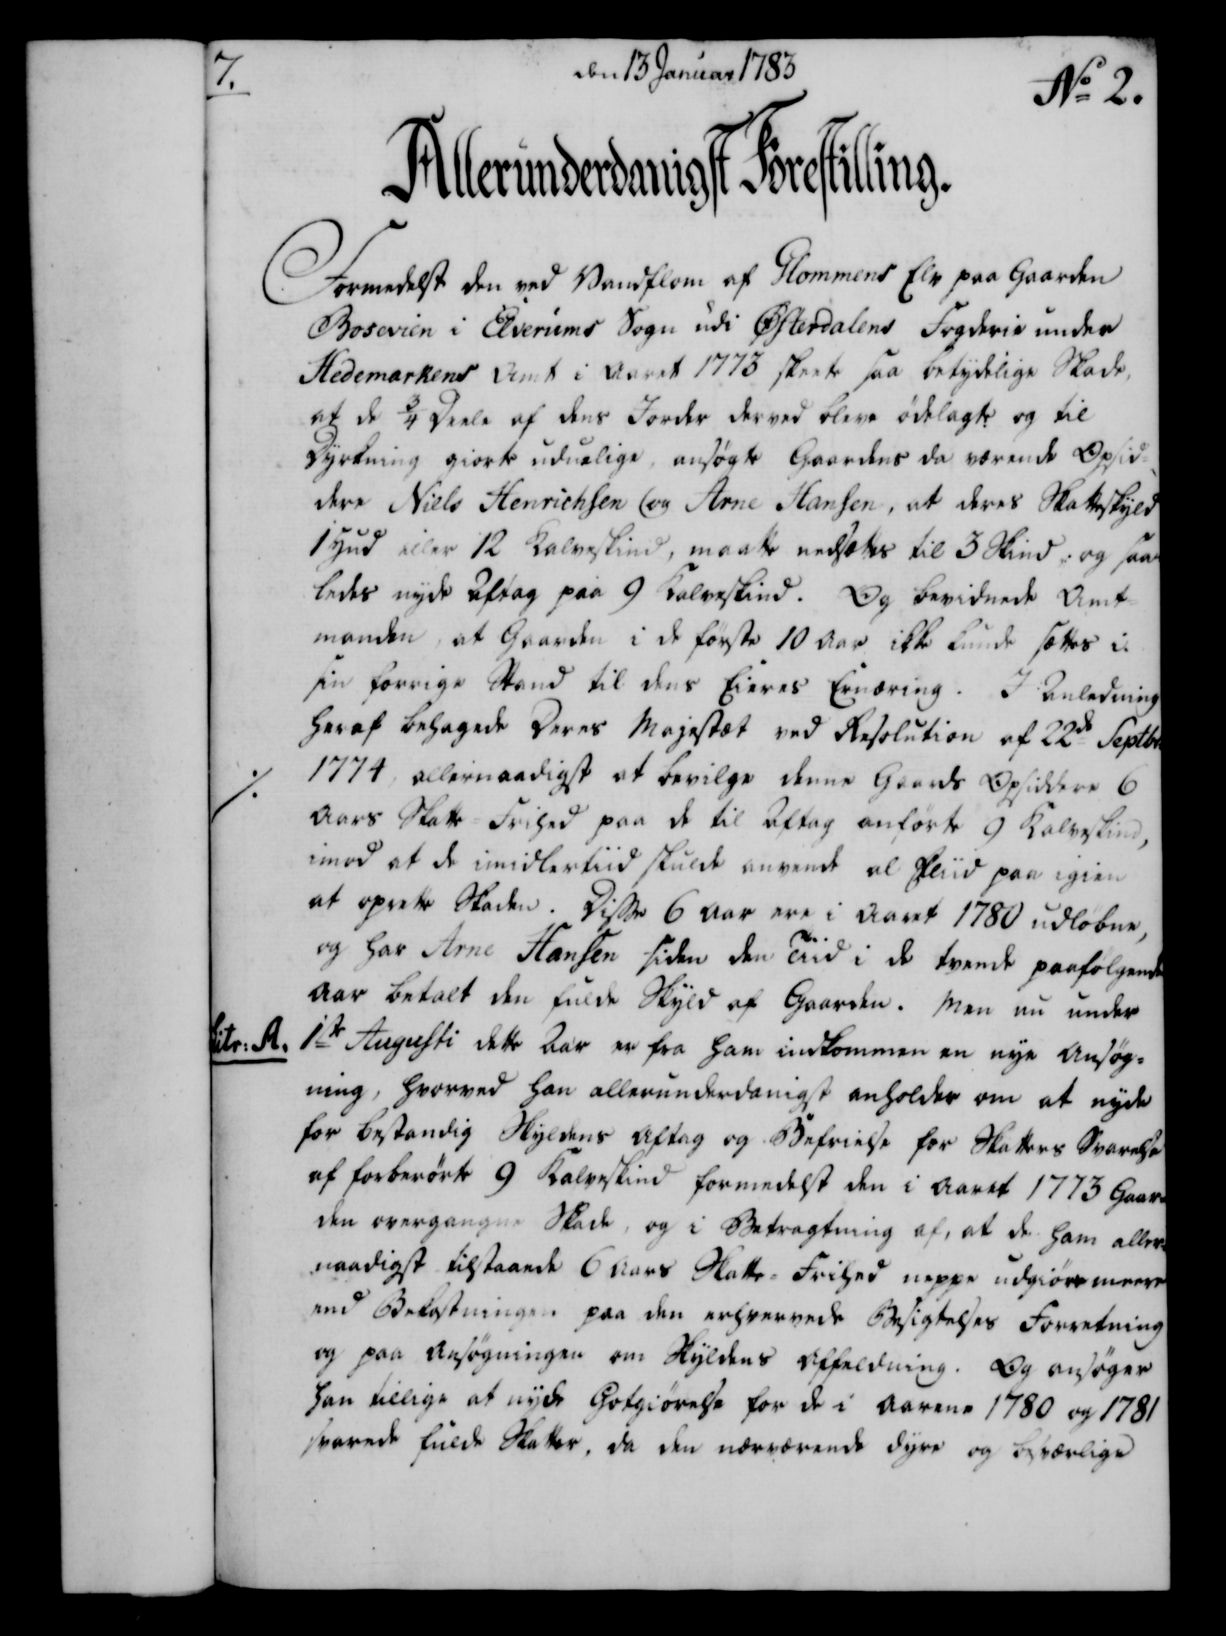 7.
den 13 Januar 1783
No 2.
Allerunderdanigst Forestilling.
Formedelst den ved Vandflom af Glommens Elv paa Gaarden
Bosevien i Elverums Sogn udi Østerdalens Fogderie under
Hedemarkens Amt i Aaret 1773 skeete saa betydelige Skade,
at de 3/4 Deele af dens Jorder derved bleve ødelagte og til
Dyrkning giorte uduelige, ansøgte Gaardens da værende Opsid=
dere Niels Henrichsen og Arne Hansen, at deres Skatteskyld
1 Hud eller 12 Kalveskind, maatte nedsættes til 3 Skind, og saa=
ledes nyde Aftag paa 9 Kalveskind. Og bevidnede Amt=
manden, at Gaarden i de første 10 Aar ikke kunde sættes i
sin forrige Stand til dens Eieres Ernæring. I Anledning
heraf behagede Deres Majestæt ved Resolution af 22de Septbr
1774, allernaadigst at bevilge denne Gaards Opsiddere 6
./.
Aars Skatte=Frihed paa de til Aftag anførte 9 Kalveskind,
imod at de imidlertiid skulde anvende al Fliid paa igien
at oprette Skaden. Disse 6 Aar ere i Aaret 1780 udløbne,
og har Arne Hansen siden den Tiid i de tvende paafølgende
Aar betalt den fulde Skyld af Gaarden. Men nu under
Litr: A.
1ste Augusti dette Aar er fra ham indkommen en nye Ansøg=
ning, hvorved han allerunderdanigst anholder om at nyde
for bestandig Skyldens Aftag og Befrielse for Skatters Svarelse
af forberørte 9 Kalveskind formedelst den i Aaret 1773 Gaar=
den overgangne Skade, og i Betragtning af, at de ham aller=
naadigst tilstaaede 6 Aars Skatte=Frihed neppe udgiøre meere
end Bekostningen paa den erhvervede Besigtelses Forretning
og paa Ansøgningen om Skyldens Affældning. Og ansøger
han tillige at nyde Godtgiørelse for de i Aarene 1780 og 1781
svarede fulde Skatter, da den nærværende dyre og besværlige